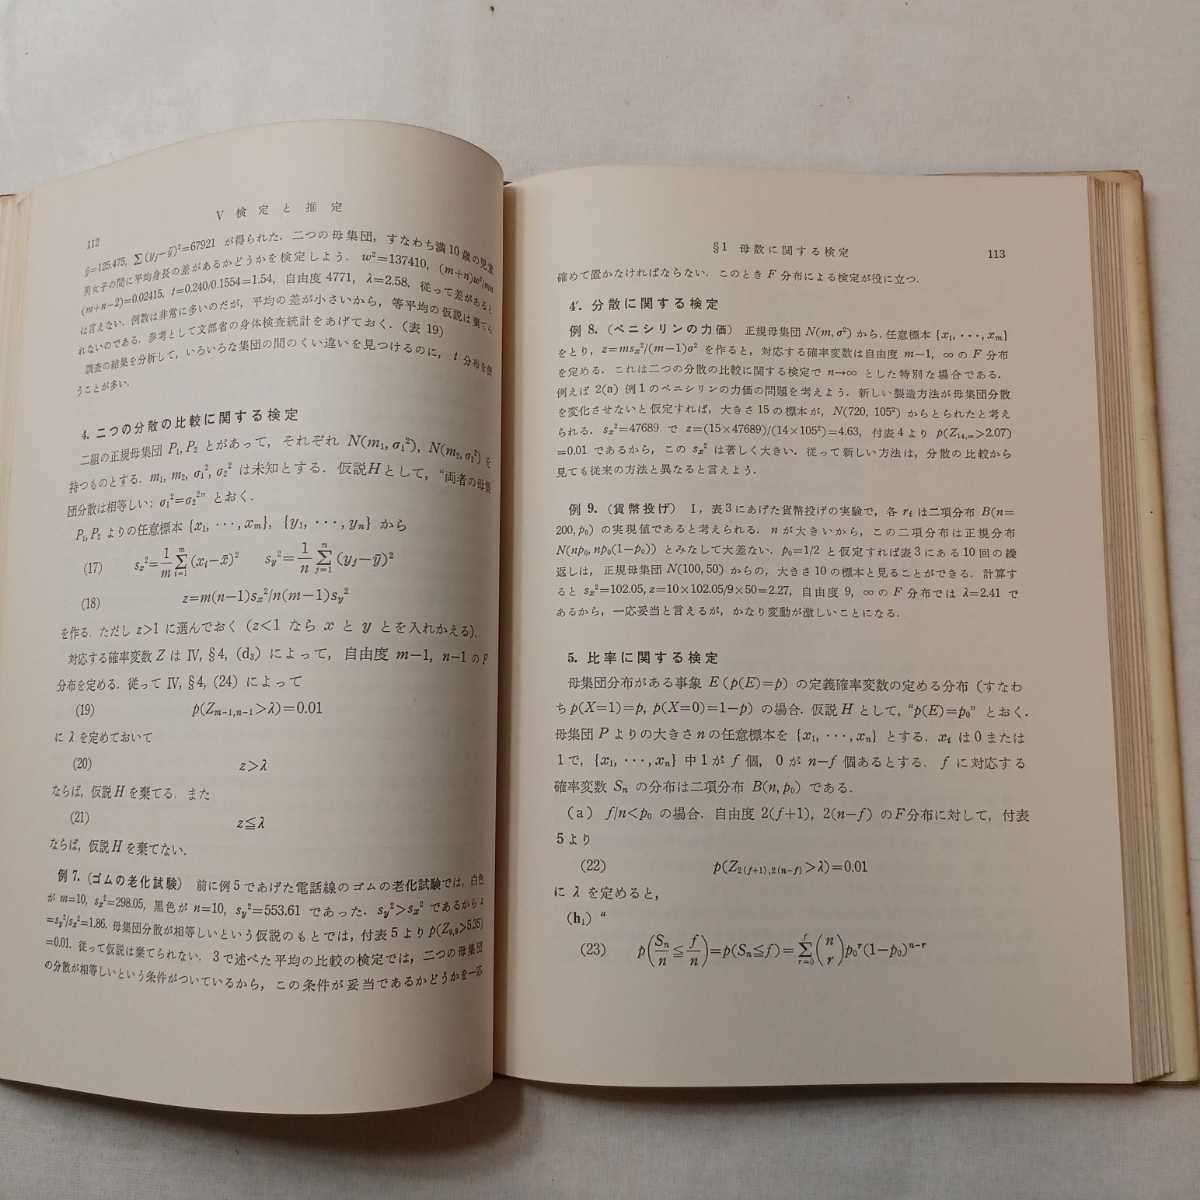 V 検定と推定
112
ȳ=125.475, ∑(yⱼ−ȳ)²=67921 が得られた．二つの母集団，すなわち満10歳の児童
男女子の間に平均身長の差があるかどうかを検定しよう．w²=137410, (m+n)w²/mn
(m+n−2)=0.02415, t=0.240/0.1554=1.54, 自由度 4771, λ=2.58. 従って差があると
は言えない．例数は非常に多いのだが，平均の差が小さいから，等平均の仮説は棄てら
れないのである．参考として文部省の身体検査統計をあげておく．(表 19)
調査の結果を分析して，いろいろな集団の間のくい違いを見つけるのに，t 分布を使
うことが多い．
4. 二つの分散の比較に関する検定
二組の正規母集団 P₁, P₂ とがあって，それぞれ N(m₁, σ₁²), N(m₂, σ₂²) を
持つものとする．m₁, m₂, σ₁², σ₂² は未知とする．仮説Hとして，“両者の母集
団分散は相等しい：σ₁²=σ₂²” とおく．
P₁, P₂ よりの任意標本 {x₁, ···, xₘ}, {y₁, ···, yₙ} から
(17) sₓ²=1/m ∑ᵢ₌₁ᵐ(xᵢ−x̄)² s_y²=1/n ∑ⱼ₌₁ⁿ(yⱼ−ȳ)²
(18) z=m(n−1)sₓ²/n(m−1)s_y²
を作る．ただし z>1 に選んでおく (z<1 なら x と y とを入れかえる)．
対応する確率変数 Z は IV, §4, (d₃) によって，自由度 m−1, n−1 の F
分布を定める．従って IV, §4, (24) によって
(19) p(Zₘ₋₁,ₙ₋₁>λ)=0.01
に λ を定めておいて
(20) z>λ
ならば，仮説 H を棄てる．また
(21) z≦λ
ならば，仮説 H を棄てない．
例 7. (ゴムの老化試験) 前に例5であげた電話線のゴムの老化試験では，白色
が m=10, sₓ²=298.05, 黒色が n=10, s_y²=553.61 であった．s_y²>sₓ² であるから z
=s_y²/sₓ²=1.86. 母集団分散が相等しいという仮説のもとでは，付表 5 より p(Z₉,₉>5.35)
=0.01. 従って仮説は棄てられない．3で述べた平均の比較の検定では，二つの母集団
の分散が相等しいという条件がついているから，この条件が妥当であるかどうかを一応
§1 母数に関する検定
113
確めて置かなければならない．このとき F 分布による検定が役に立つ．
4′. 分散に関する検定
例 8. (ペニシリンの力価) 正規母集団 N(m, σ²) から，任意標本 {x₁, ···, xₘ}
をとり，z=msₓ²/(m−1)σ² を作ると，対応する確率変数は自由度 m−1, ∞ の F 分布
を定める．これは二つの分散の比較に関する検定で n→∞ とした特別な場合である．
例えば 2(a) 例1のペニシリンの力価の問題を考えよう．新しい製造方法が母集団分散
を変化させないと仮定すれば，大きさ 15 の標本が，N(720, 105²) からとられたと考え
られる．sₓ²=47689 で z=(15×47689)/(14×105²)=4.63, 付表 4 より p(Z₁₄,∞>2.07)
=0.01 であるから，この sₓ² は著しく大きい．従って新しい方法は，分散の比較から
見ても従来の方法と異なると言えよう．
例 9. (貨幣投げ) I, 表3にあげた貨幣投げの実験で，各 rᵢ は二項分布 B(n=
200, p₀) の実現値であると考えられる．n が大きいから，この二項分布は正規分布
N(np₀, np₀(1−p₀)) とみなして大差ない．p₀=1/2 と仮定すれば表3にある10回の繰
返しは，正規母集団 N(100, 50) からの，大きさ10の標本と見ることができる．計算す
ると sₓ²=102.05, z=10×102.05/9×50=2.27, 自由度 9, ∞ の F 分布では λ=2.41 で
あるから，一応妥当と言えるが，かなり変動が激しいことになる．
5. 比率に関する検定
母集団分布がある事象 E (p(E)=p) の定義確率変数の定める分布 (すなわ
ち p(X=1)=p, p(X=0)=1−p) の場合．仮説 H として，“p(E)=p₀” とおく．
母集団 P よりの大きさ n の任意標本を {x₁, ···, xₙ} とする．xᵢ は 0 または
1 で，{x₁, ···, xₙ} 中 1 が f 個，0 が n−f 個あるとする．f に対応する
確率変数 Sₙ の分布は二項分布 B(n, p₀) である．
(a) f/n<p₀ の場合．自由度 2(f+1), 2(n−f) の F 分布に対して，付表
5 より
(22) p(Z₂₍f₊₁₎,₂₍ₙ₋f₎>λ)=0.01
に λ を定めると，
(h₁) “
(23) p(Sₙ/n≦f/n)=p(Sₙ≦f)=∑ᵣ₌₀ᶠ(n r)p₀ʳ(1−p₀)ⁿ⁻ʳ